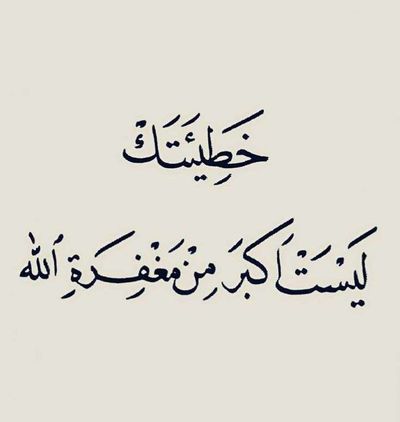 خَطِيئَتَكْ
لَيْسَتْ اَكبَرَ مِنْ مَغْفِرَةِ ٱلله